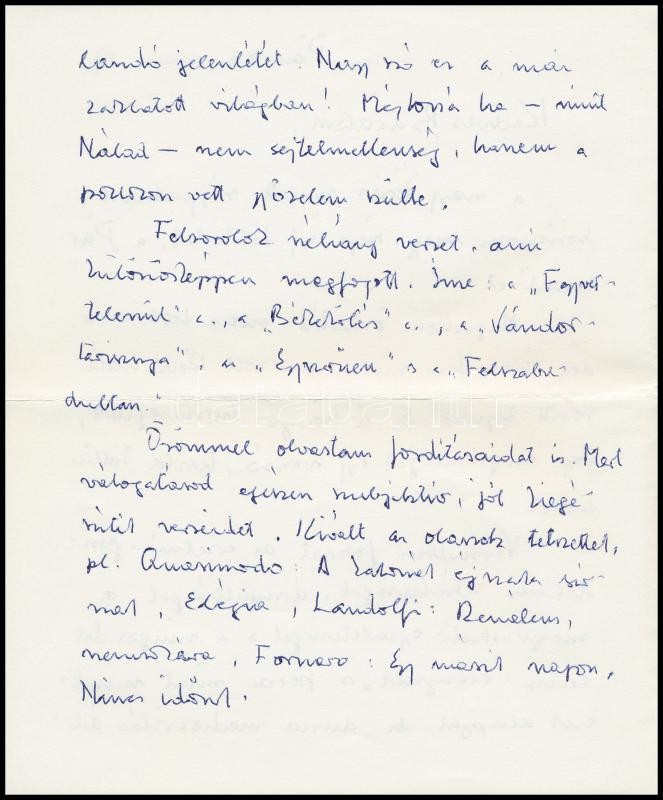 landó jelenlétét. Nagy szó ez a mai
zaklatott világban! Méghozzá ha – mint
Nálad – nem sejtelmellenség, hanem a
poklokon vett győzelem szülte.
Felsorolok néhány verset, ami
különösképpen megfogott. Íme: a „Fegyver-
telenül", a „Békekötés", a „Vándor-
tarisznya", az „Egyszerűen" s a „Felszaba-
dultan"
Örömmel olvastam fordításaidat is. Mert
válogatásod egészen szubjektív, jól kiegé-
szíti verseidet. Kivált az olaszok tetszettek,
pl. Quasimodo: A katonák éjszaka sír-
nak, Elégia, Landolfi:
Fornaro: Egy másik napon,
Nincs időnk.